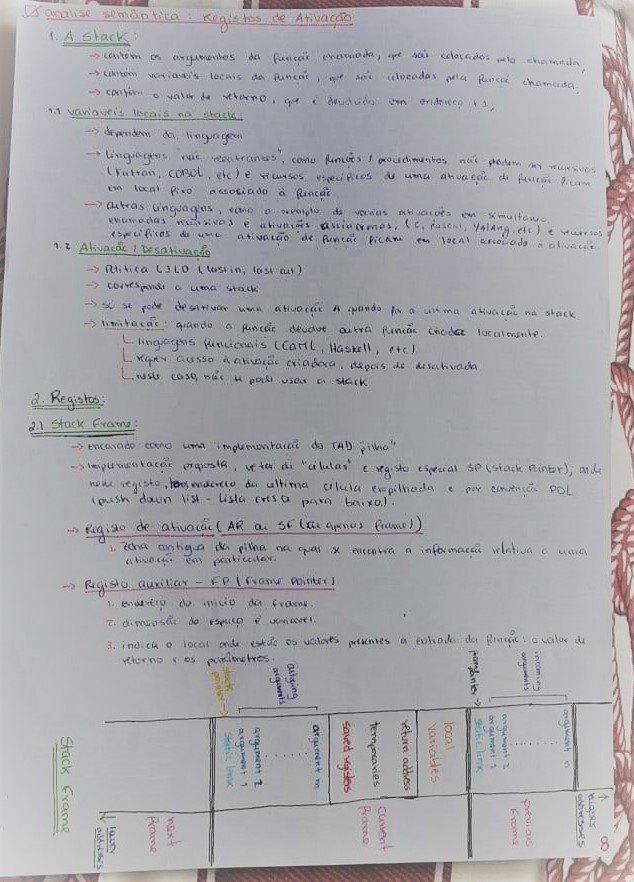 analise semântica: Registos de Ativação
1. A Stack:
→ contém os argumentos da função chamada, que são colocados pelo chamada,
→ contém variaveis locais da função, que são colocados pela função chamada.
→ contém o valor de retorno, que é devolvido em endereço +1,
1.1 variaveis locais na stack:
→ dependem da linguagem
→ linguagens "não reentrantes", como funções / procedimentos não podem ser recursivos
(Fortran, COBOL, etc) e recursos especificos de uma ativação de função Ficam
em local Fixo associado à Função.
→ outras linguagens, como o exemplo de varias ativações em simultaneo,
chamadas recursivas e ativações assincronas, (C, Pascal, etc) e recursos
especificos de uma ativação de Função Ficam em local associado à ativação.
1.2 Ativação / Desativação
→ Politica LILO (last in, last out)
→ corresponde a uma stack
→ só se pode desativar uma ativação A quando for a ultima ativação na stack
→ limitação: quando a Função devolve outra Função localmente.
linguagens funcionais (CamL, Haskell, etc)
requer acesso à ativação criadora, depois de desativada
neste caso, não se pode usar a stack
2. Registos:
2.1 Stack Frame:
→ encarado como uma implementação do TAD "pilha"
→ Implementação proposta, vetor de "células" e registo especial SP (Stack Pointer), onde
neste registo, endereço da ultima célula empilhada e por convenção PDL
(push down list - Lista cresce para baixo).
→ Registo de ativação (AR ou SF (ou apenas frame))
1. Zona contigua da pilha na qual se encontra a informação relativa a uma
ativação em particular.
→ Registo auxiliar - FP (Frame Pointer)
1. endereço do inicio da Frame.
2. dimensão do espaço é variavel.
3. indica o local onde estão os valores presentes à entrada da função: o valor de
retorno e os parâmetros.
↑ higher addresses
previous Frame
incoming arguments
argument n
argument 2
argument 1
static link
current Frame
local variables
return address
temporaries
saved registers
outgoing arguments
argument m
argument 2
argument 1
static link
stack pointer →
next Frame
↓ lower addresses
Stack Frame
8